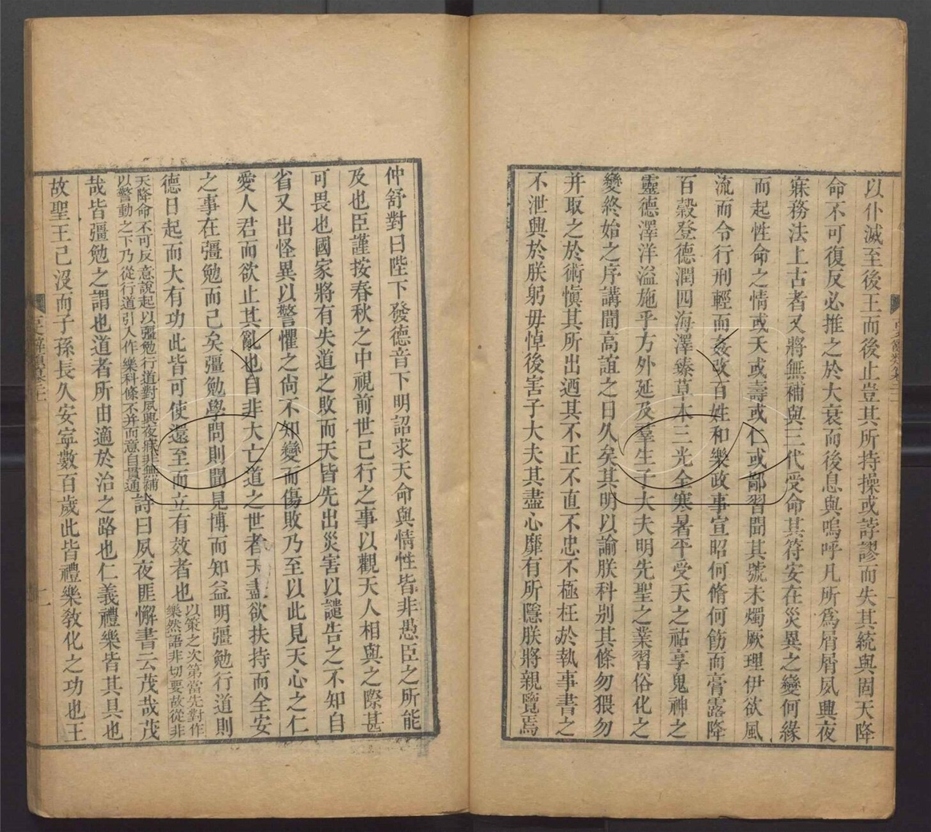 以仆滅至後王而後止豈其所持操或誖謬而失其統與固天降
命不可復反必推之於大衰而後息與嗚呼凡所爲屑屑夙興夜
寐務法上古者又將無補與三代受命其符安在災異之變何緣
而起性命之情或夭或壽或仁或鄙習聞其號未燭厥理伊欲風
流而令行刑輕而姦改百姓和樂政事宣昭何脩何飭而膏露降
百穀登德潤四海澤臻草木三光全寒暑平受天之祜享鬼神之
靈德澤洋溢施乎方外延及羣生子大夫明先聖之業習俗化之
變終始之序講聞高誼之日久矣其明以諭朕科別其條勿猥勿
并取之於術愼其所出迺其不正不直不忠不極枉於執事書之
不泄興於朕躬毋悼後害子大夫其盡心靡有所隱朕將親覽焉
仲舒對曰陛下發德音下明詔求天命與情性皆非愚臣之所能
及也臣謹按春秋之中視前世已行之事以觀天人相與之際甚
可畏也國家將有失道之敗而天皆先出災害以譴告之不知自
省又出怪異以警懼之尙不知變而傷敗乃至以此見天心之仁
愛人君而欲止其亂也自非大亡道之世者天盡欲扶持而全安
之事在彊勉而已矣彊勉學問則聞見博而知益明彊勉行道則
德日起而大有功此皆可使還至而立有效者也以策之次第當先對作
樂然語非切要故從非
天降命不可反意說起以彊勉行道對夙興夜寐非無補
以警動之下乃從行道引入作樂科條不并而意自貫通詩曰夙夜匪懈書云茂哉茂
哉皆彊勉之謂也道者所由適於治之路也仁義禮樂皆其具也
故聖王已沒而子孫長久安寧數百歲此皆禮樂敎化之功也王